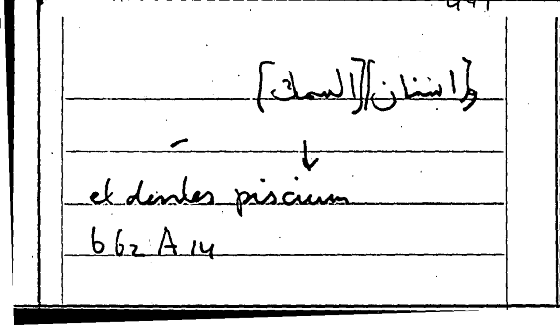 واسنان][السمك]
et dentes piscium
662 A 14